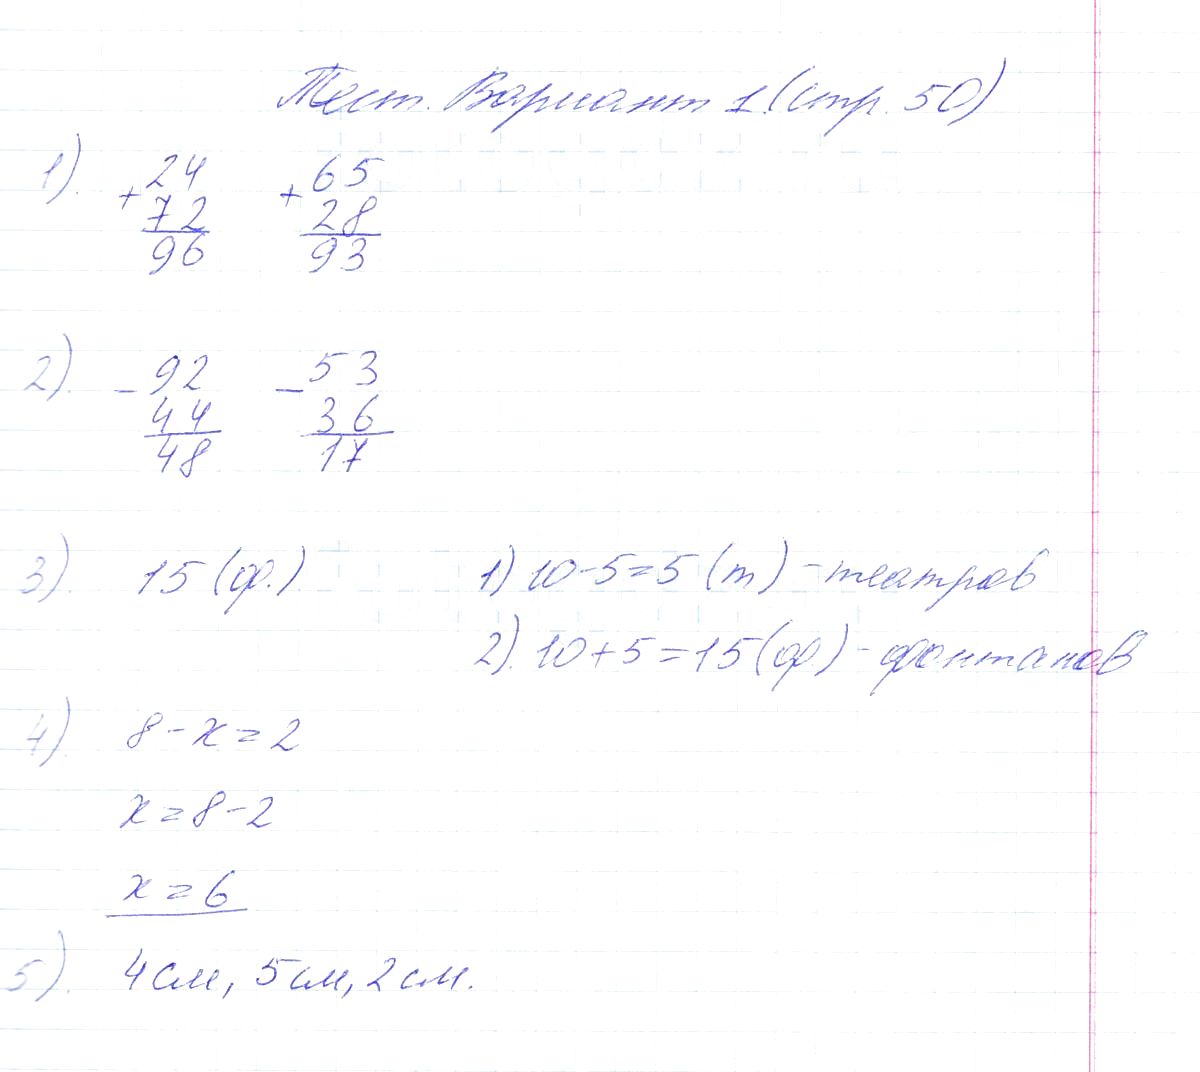 Тест. Вариант 1 (стр. 50)
1). + 24 + 65
72 28
96 93
2). - 92 - 53
44 36
48 17
3). 15 (ф.) 1) 10-5=5 (т) - театров
2). 10+5=15 (ф) - фонтанов
4). 8-х=2
х=8-2
х=6
5). 4 см, 5 см, 2 см.